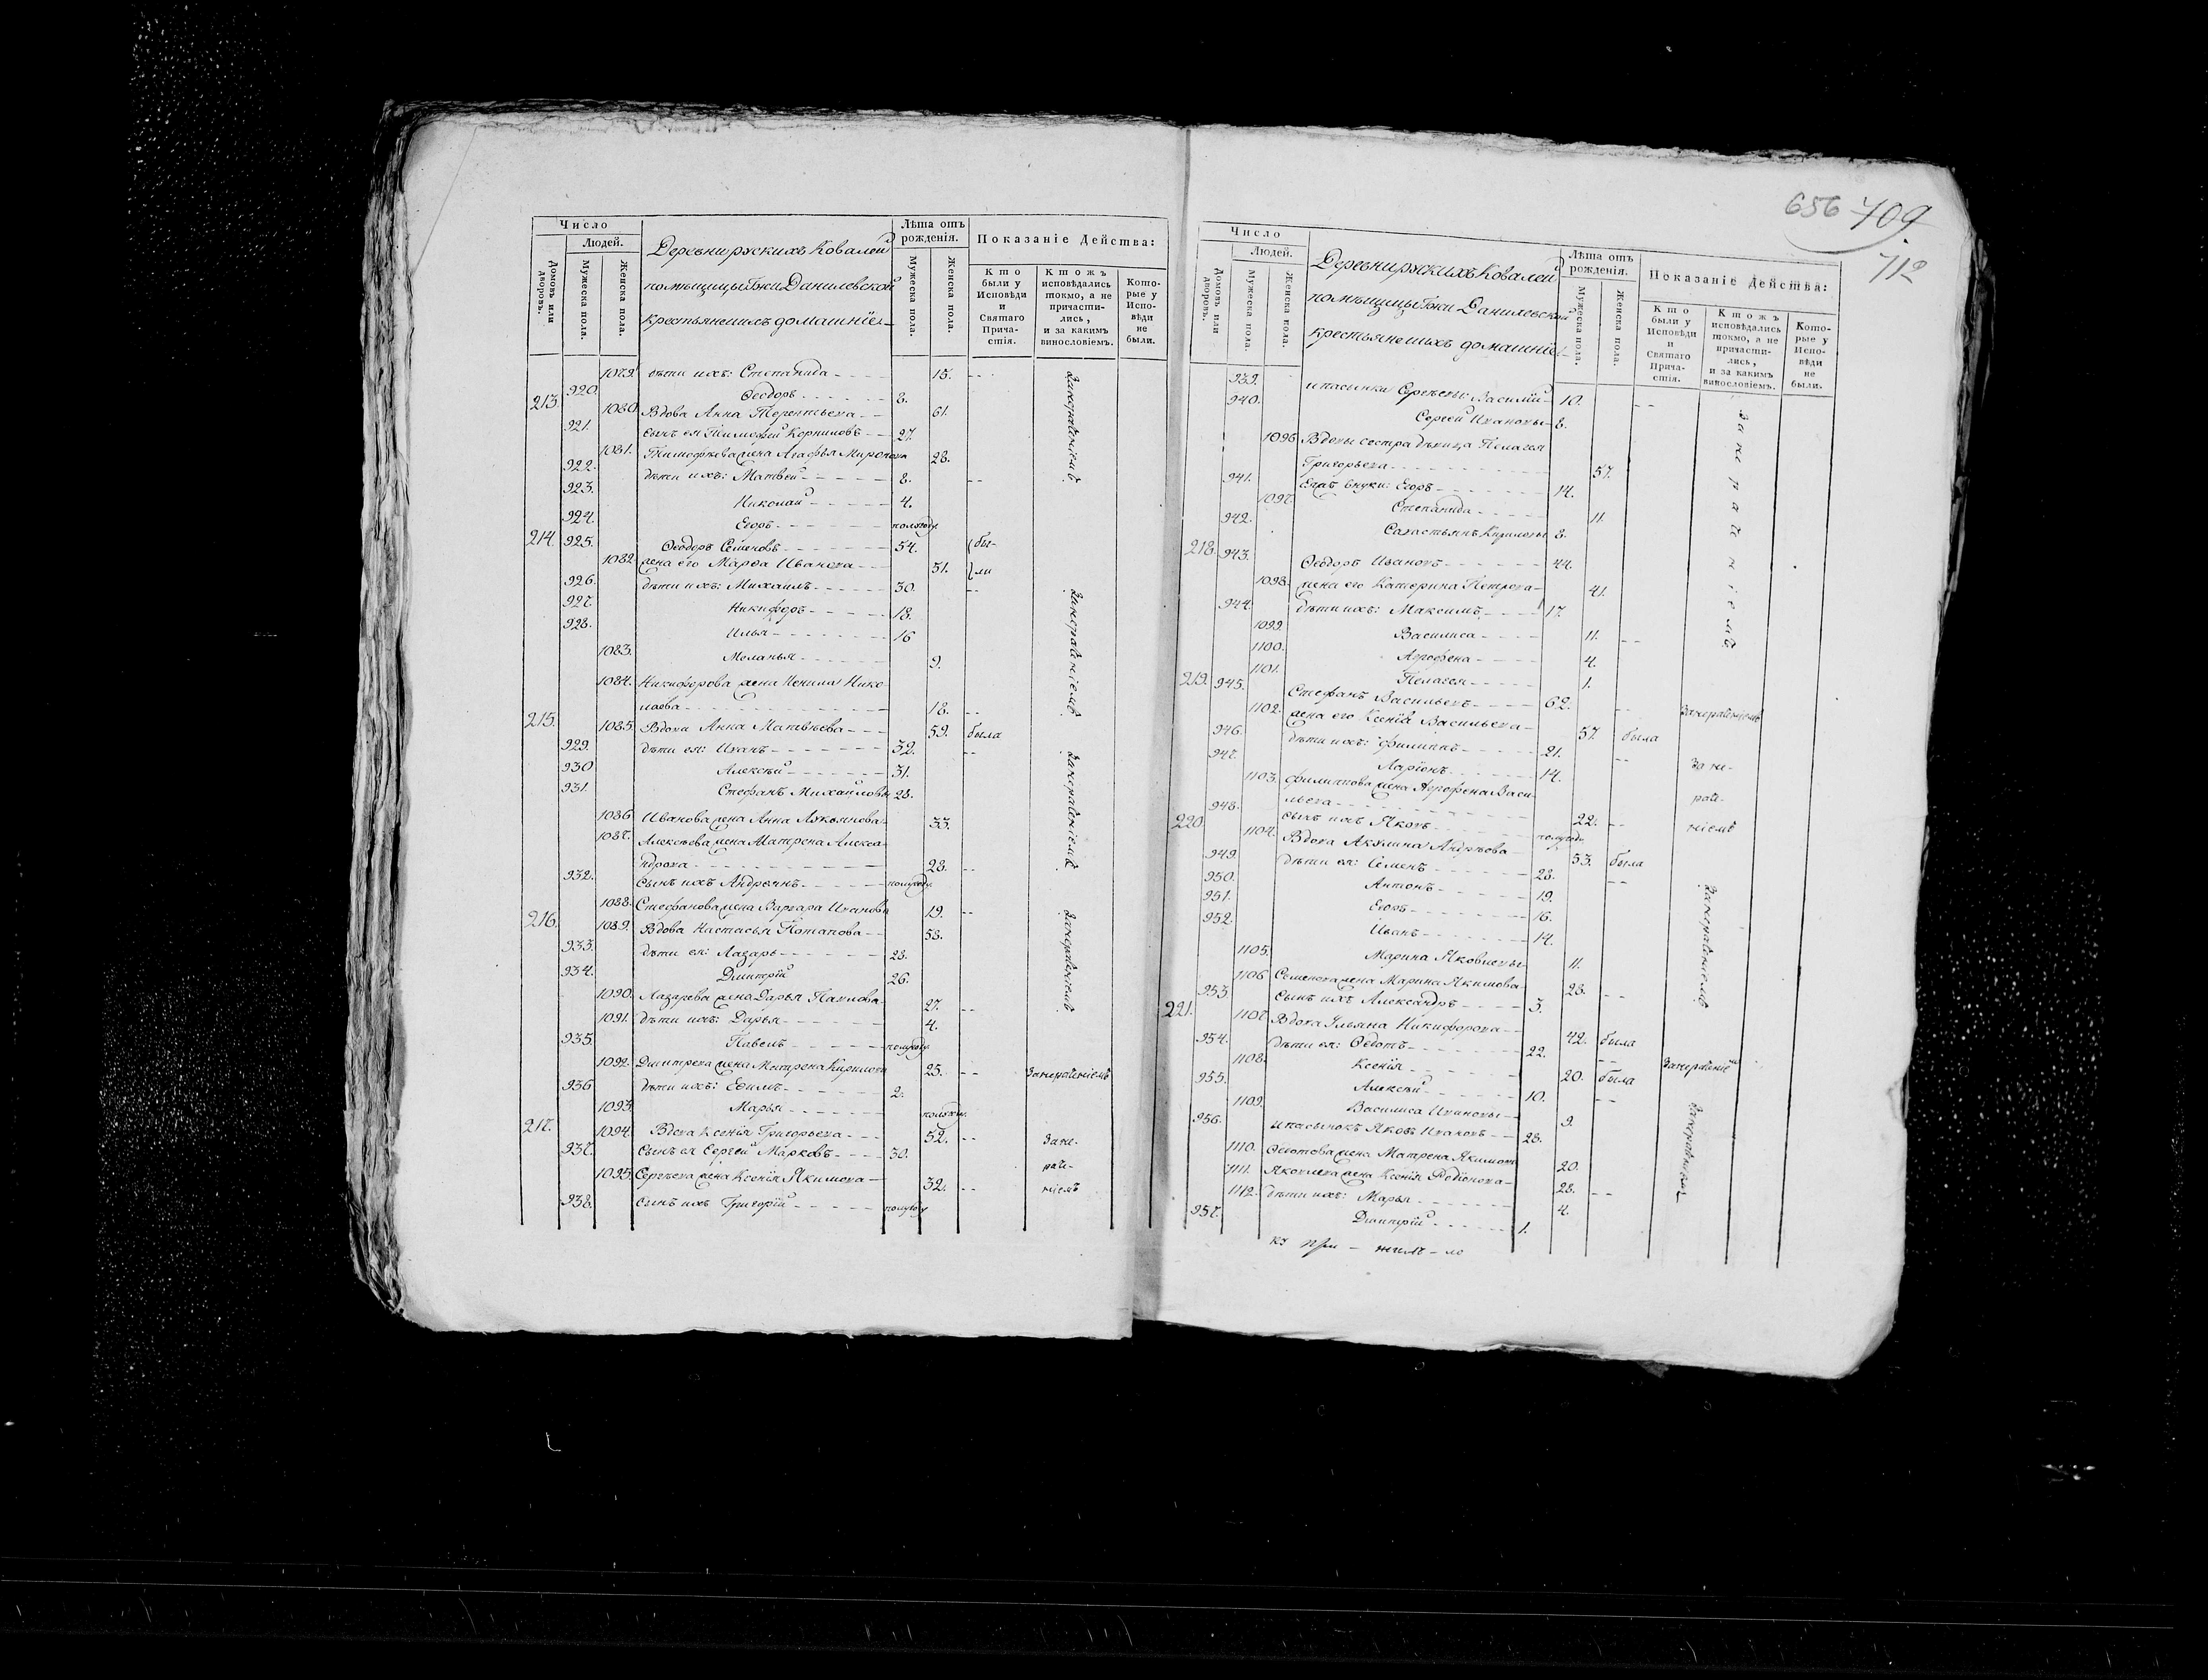 656 709
712
Число
Людей.
Домовъ или дворовъ.
Мужеска пола.
Женска пола.
Деревни рускихъ Ковалей
помѣщицы Гжи Данилевской
крестьяне ихъ домашніе
Лѣта отъ рожденія.
Мужеска пола.
Женска пола.
Показаніе Действа:
Кто были у Исповѣди и Святаго Прича- стія.
Кто жъ исповѣдались токмо, а не причасти- лись, и за какимъ винословіемъ.
Кото- рые у Испо- вѣди не были.
1079. дѣти ихъ: Степанида 15. занераденіемъ
920. Ѳеодоръ 8.
213. 1080. Вдова Анна Терентьева 61.
921. сынъ ея Тимофей Корниловъ 27.
1081. Тимофѣева жена Агафья Миронова 28.
922. дѣти ихъ: Матвей 8.
923. Николай 4.
924. Егоръ полугоду
214. 925. Ѳеодоръ Семеновъ 54. бы-
1082. жена его Марѳа Иванова 51. ли
926. дѣти ихъ: Михаилъ 30. занераденіемъ
927. Никифоръ 18.
928. Илья 16
1083. Меланья 9.
1084. Никифорова жена Ненила Нико-
лаева 18.
215. 1085. Вдова Анна Матвѣева 59. была
929. дѣти ея: Иванъ 32. занераденіемъ
930 Алексѣй 31.
931. Стефанъ Михайловы 28.
1086. Иванова жена Анна Лукьянова 33.
1087. Алексѣева жена Матрена Алекса-
ндрова 28.
932. сынъ ихъ Андреянъ полугоду
1088. Стефанова жена Варвара Иванова 19. занераденіемъ
216. 1089. Вдова Настасья Потапова 58.
933. дѣти ея: Лазарь 28.
934. Дмитрій 26.
1090. Лазарева жена Дарья Павлова 27.
1091. дѣти ихъ: Дарья 4.
935. Павелъ полугоду
1092. Дмитрева жена Матрена Кирилова 25. занераденіемъ
936 дѣти ихъ: Ефимъ 2.
1093. Марья полугоду
217. 1094. Вдова Ксенія Григорьева 52. зане-
937. сынъ ея Сергей Марковъ 30. раде-
1095. Сергѣева жена Ксенія Якимова 32. ніемъ
938. сынъ ихъ Григорій полугоду
Число
Людей.
Домовъ или дворовъ.
Мужеска пола.
Женска пола.
Деревни рускихъ Ковалей
помѣщицы Гжи Данилевской
крестьяне ихъ домашніе
Лѣта отъ рожденія.
Мужеска пола.
Женска пола.
Показаніе Действа:
Кто были у Исповѣди и Святаго Прича- стія.
Кто жъ исповѣдались токмо, а не причасти- лись, и за какимъ винословіемъ.
Кото- рые у Испо- вѣди не были.
939. и пасынки Сергѣевы: Василій 10. занераденіемъ
940. Сергей Ивановы 8.
1096 Вдовы сестра дѣвица Пелагея
Григорьева 57.
941. Еяжъ внуки: Егоръ 14.
1097. Степанида 11.
942. Савастьянъ Кириловы 8.
218. 943. Ѳеодоръ Ивановъ 44.
1098. жена его Катерина Петрова 41.
944. дѣти ихъ: Максимъ 17.
1099. Василиса 11.
1100. Агрофена 4.
1101. Пелагея 1.
219. 945. Стефанъ Васильевъ 62. занераденіемъ
1102. жена его Ксенія Васильева 57. была
946. дѣти ихъ: Филиппъ 21. зане-
947. Ларіонъ 14.
1103. Филиппова жена Агрофена Васи- раде-
льева 22.
948. сынъ ихъ Яковъ полугоду ніемъ
220. 1104. Вдова Акулина Андрѣева 53. была
949. дѣти ея: Семенъ 28. занераденіемъ
950. Антонъ 19.
951. Егоръ 16.
952. Иванъ 14.
1105. Марина Яковлевы 11.
1106 Семенова жена Марина Якимова 28.
953. сынъ ихъ Александръ 3.
221. 1107. Вдова Ульяна Никифорова 42. была
954. дѣти ея: Ѳедотъ 22. занераденіемъ
1108. Ксенія 20. была
955. Алексѣй 10. занераденіемъ
1109. Василиса Ивановы 9.
956. и пасынокъ Яковъ Ивановъ 28.
1110. Ѳедотова жена Матрена Якимова 20.
1111. Яковлева жена Ксенія Родіонова 28.
1112. дѣти ихъ: Марья 4.
957. Дмитрій 1.